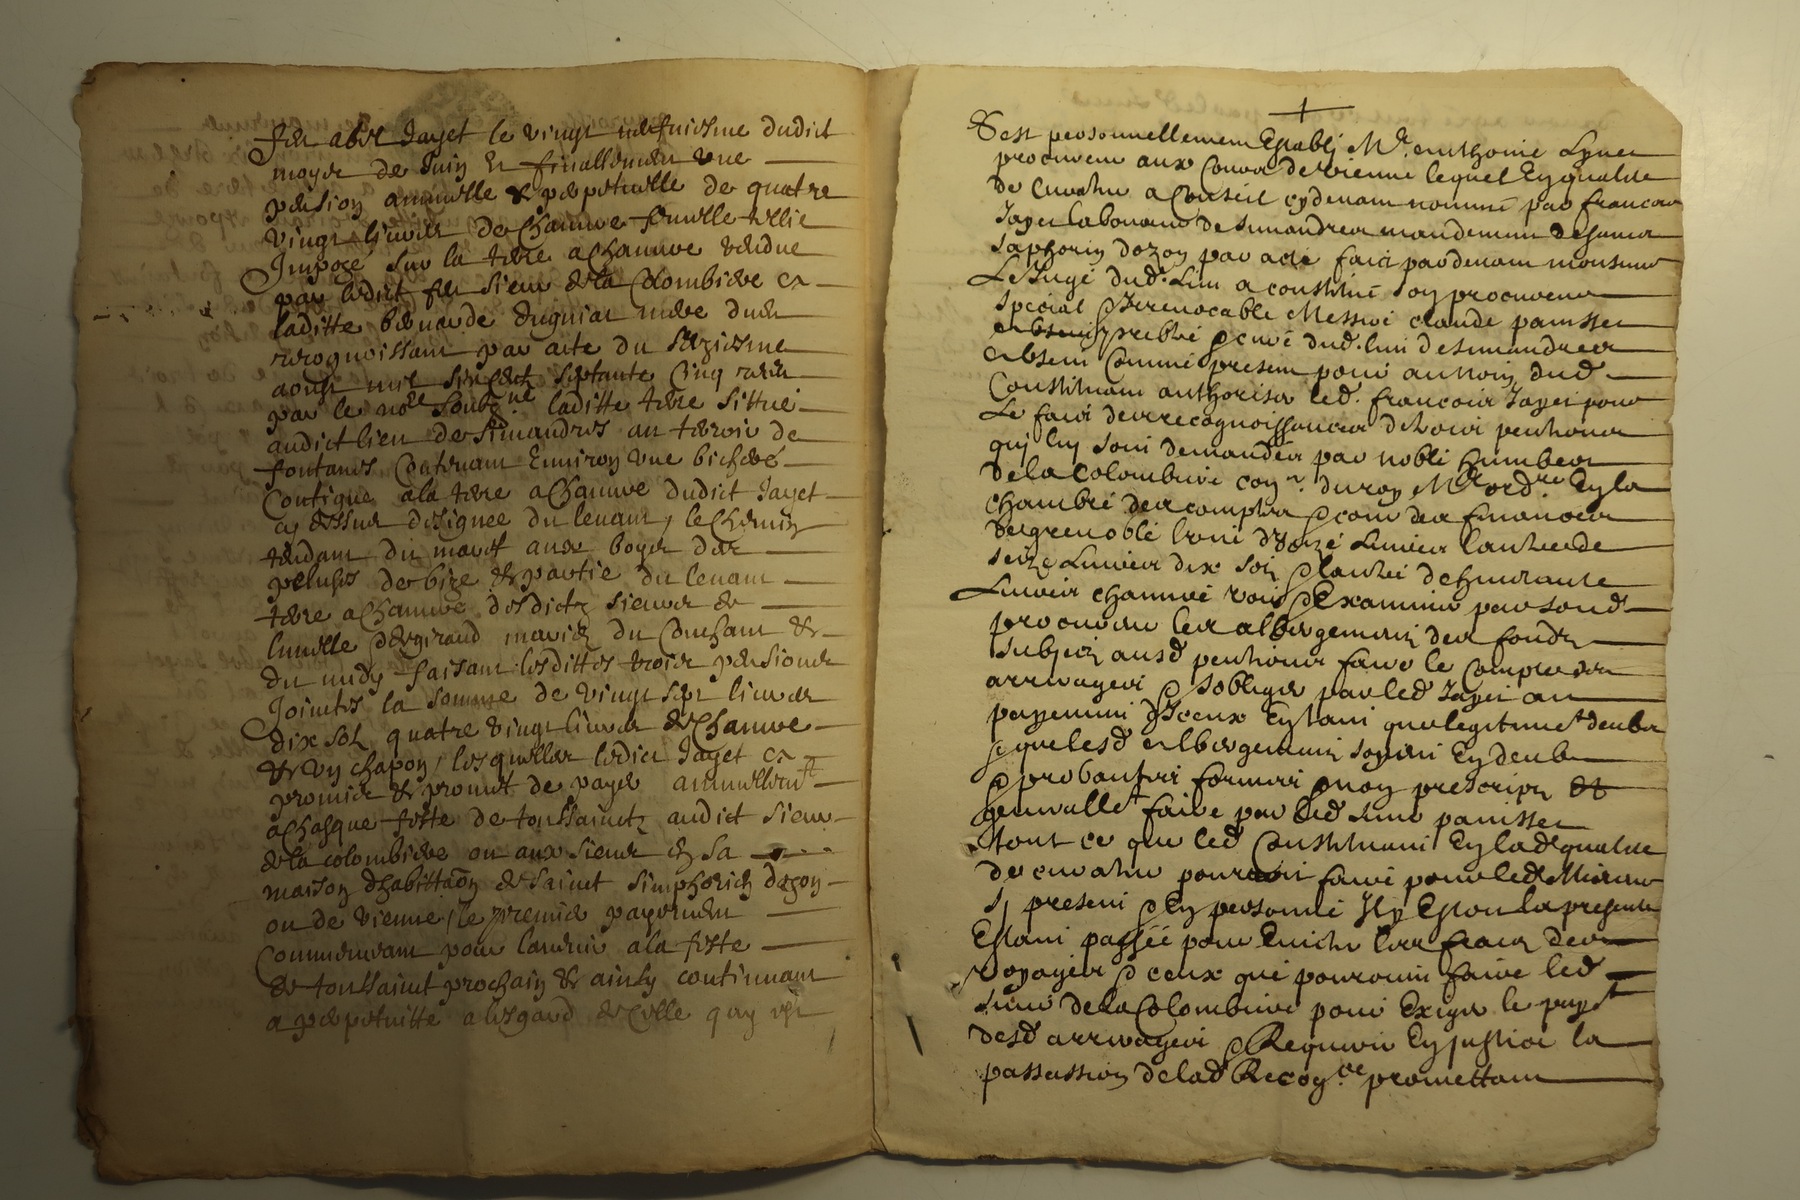 feu abel Jayet le vingt neufuiesme dudict
moys de Juin Et finallement vne
pension annuelle & perpetuelle de quatre
vingt liures de Chanure femelle tellie
Imposé sur la terre a Chanure vendue
par ledict feu sieur de la Colombiere et
laditte bernarde mere dudit
recognoissant par acte du seziesme
aoust mil six centz septante cinq receu
par le no.re soubz.ne laditte terre sittué
audict lieu de simandres au terroir de
fontanes Contenant Enuiron vne bicheré
Contigue a la terre a Chanure dudict Jayet
cy dessus designee du leuant, le Chemin
tendant du aux boyes des
de bize & partie du leuant
terre a Chanure desdictz sieurs de
& Dergiraud mariez du Couchant &
du midy faisant lesdittes trois pensions
Jointes la somme de vingt sept liures
dix solz quatre vingt liures de Chanure
& vn chapon, lesquelles ledict Jayet a
promis & promet de payer annuellem.t
a Chasque feste de toussainctz audict sieur
de la colombiere ou aux siens en sa
maison dhabitta[ti]on de saint simphorien dozon
ou de vienne, le premier payement
Commencant pour lentier a la feste
de toussaint prochain & ainsy continuant
a perpetuitte a lesgard de Celle quy est
S'est personnellement Establi M.e anthoine
procureur aux Cours de vienne lequel En qualité
de Curateur a Conseil cy deuant nommé par francois
Jayet laboureur de simandres mandement de sainct
saphorin dozon par acte faict pardeuant monsieur
Le Juge dud. lieu a constitué son procureur
special & Irreuocable Messire claude panisset
prebtre & curé dud. lieu de simandres
absent Comme present pour au nom dud.
Constituant authoriser led. francois Jayet pour
Le faict des recognoissances de trois penthions
quj luy sont demandées par noble humbert
de la Colombiere con.r du roy M.e ord.re En la
chambre des comptes & cour des finances
de grenoble lune donze Liures lautre de
seize Liures dix solz & lautre de huictante
Liures chanure voir & Examiner par sond.
procureur les albergementz des fondz
subjectz ausd. penthions faire le Compte des
arreirages & sobliger par led. Jayet au
payement diceux Estant que legitime.t deubs
& que lesd. albergementz soyent En deube
& probante forme & non prescriptz et
generalle.t faire par led. sieur panisset
tout ce que led. Constituant En lad. qualité
de curateur pourroit faire pour led. Mineur
sj present & En personne Il y Estoit la presente
Estant passée pour Euiter les fraix des
voyages & ceux que pourroient faire led.
sieur de la Colombiere pour Exiger le paye.t
desd. arreirages & Requerir En justice la
passassion de lad. Recog.ce promettant